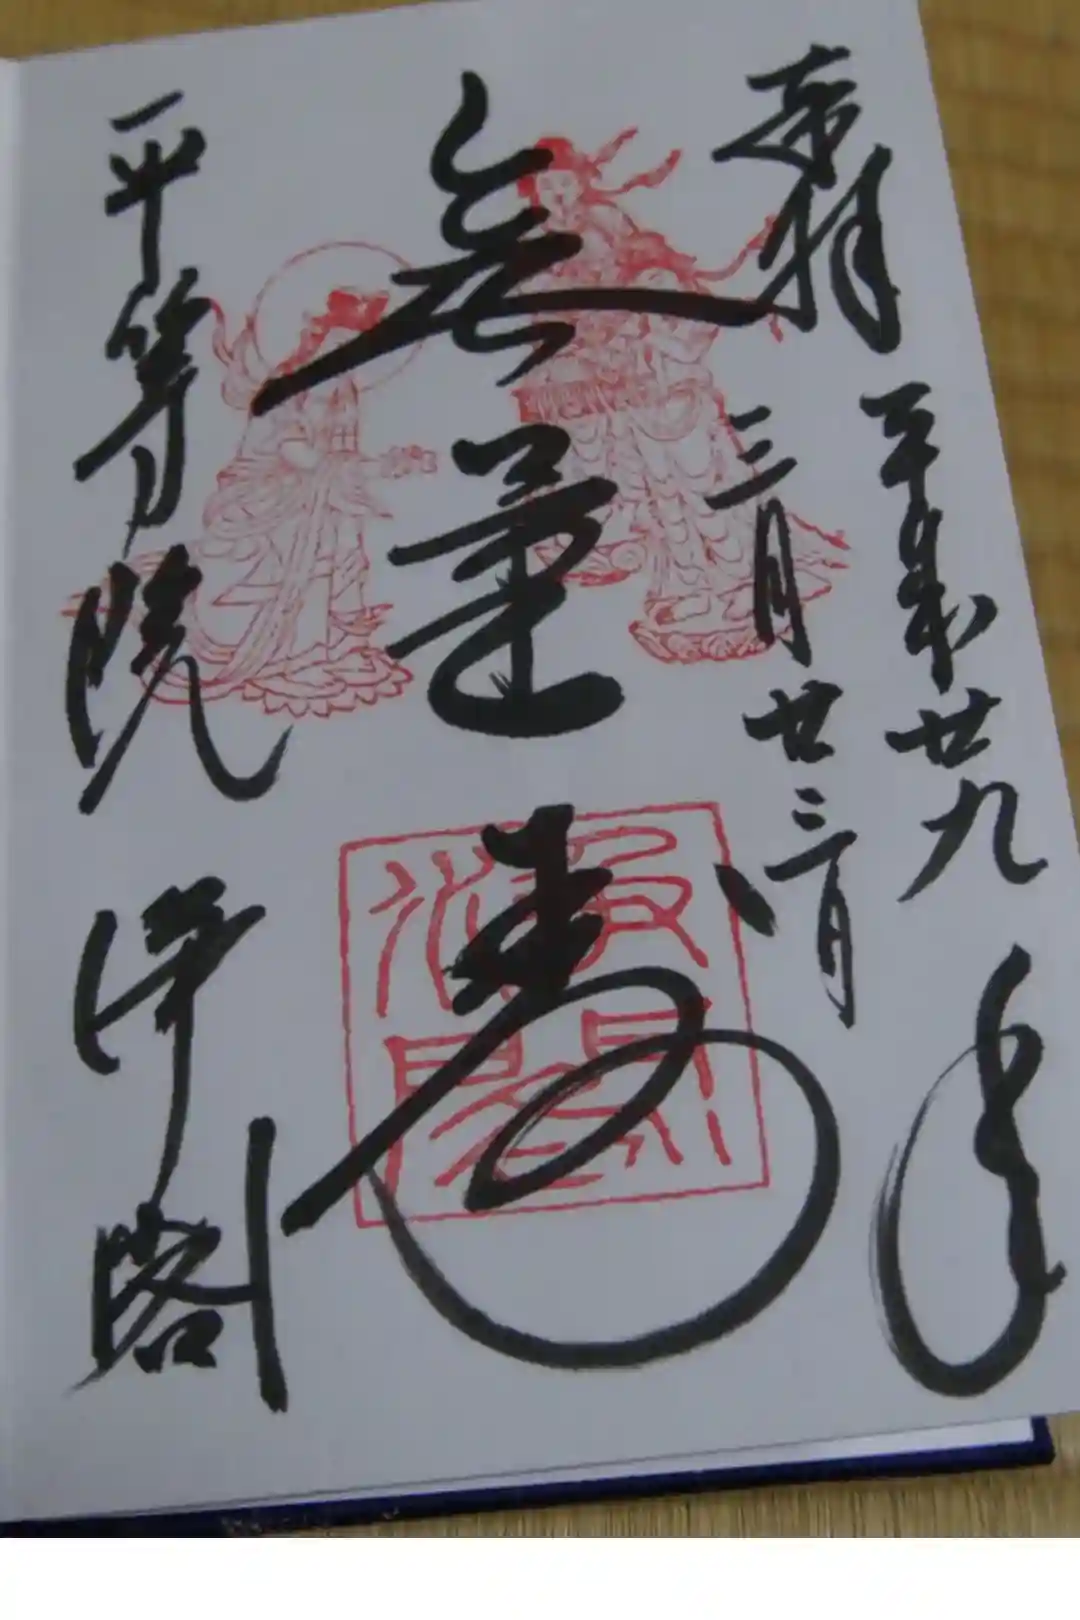 奉拝
平成廿九年
三月廿三日
無量寿
平等院
閣